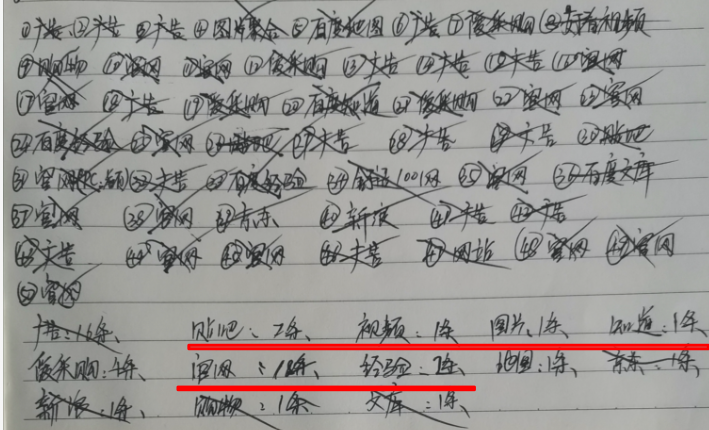 ①广告②广告③广告④图片聚合⑤百度地图⑥广告⑦爱采购⑧好看视频
⑨购物⑩官网⑪官网⑫爱采购⑬广告⑭广告⑮广告⑯官网
⑰官网⑱广告⑲爱采购⑳百度知道㉑爱采购㉒官网㉓官网
㉔百度经验㉕官网㉖贴吧㉗广告㉘广告㉙广告㉚贴吧
㉛官网㉜广告㉝百度经验㉞1001网㉟官网㊱百度文库
㊲官网㊳官网㊴京东㊵新浪㊶广告㊷广告
㊸广告㊹官网㊺官网㊻广告㊼网站㊽官网㊾官网
㊿官网
广告:16条、贴吧:2条、视频:1条、图片:1条、知道:1条、
爱采购:4条、官网:18条、经验:2条、地图:1条、京东:1条、
新浪:1条、购物:1条、文库:1条、